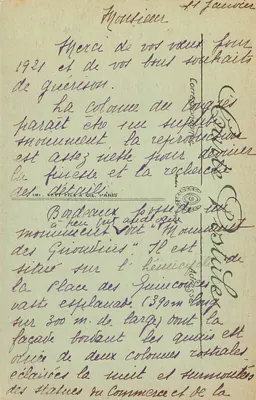 11 Janvier
Monsieur
Merci de vos vœux pour
1921 et de vos bons souhaits
de guérison.
La colonne des Congés
parait être un superbe
monument, la reproduction
est assez nette pour deviner
la finesse et la recherche
des détails.
Bordeaux possède un
monument à peu près
dit "Monument
des Girondins" Il est
situé sur l'hémicycle de
la Place des Quinconces
vaste esplanade (390m
sur 300 m. de large) dont la
façade tournant les quais est
ornée de deux colonnes rostrales
éclairées la nuit et surmontées
des statues du Commerce et de la
Carte Postale